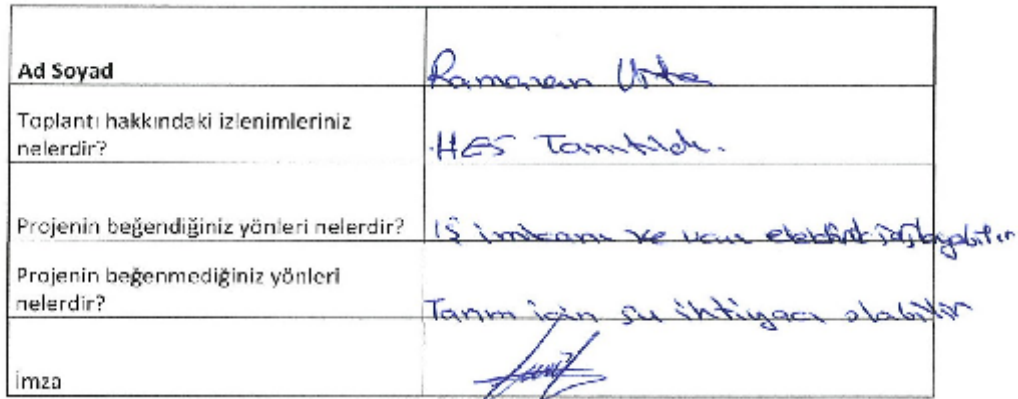 Ad Soyad
Ramazan
Toplantı hakkındaki izlenimleriniz
nelerdir?
HES Tanıtıldı.
Projenin beğendiğiniz yönleri nelerdir?
İş imkanı ve ucuz elektrik sağlayabilir
Projenin beğenmediğiniz yönleri
nelerdir?
Tarım için su ihtiyacı olabilir
imza